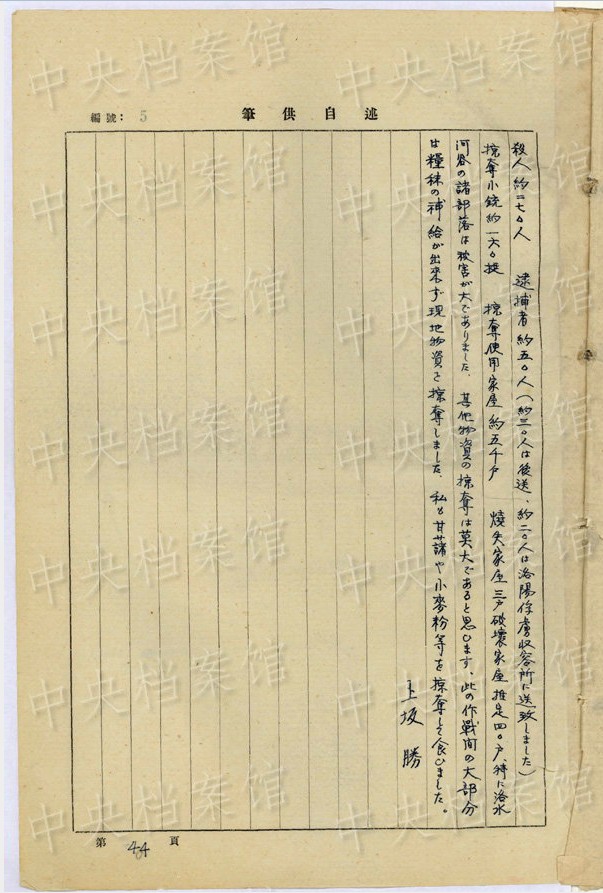 編號：5
筆供自述
殺人約二七〇人　逮捕者約五〇人（約三〇人は後送、約二〇人は洛陽俘虜収容所に送致しました）
掠奪小銃約一六〇挺　掠奪使用家屋約五千戸　燒失家屋三戸破壞家屋推定四〇戸、特に洛水
河谷の諸部落は被害が大でありました、其他物資の掠奪は莫大であると思ひます、此の作戰間の大部分
は糧秣の補給が出來ず現地物資を掠奪しました、私も甘藷や小麥粉等を掠奪して食ひました。
上坂勝
第44頁
中央档案馆